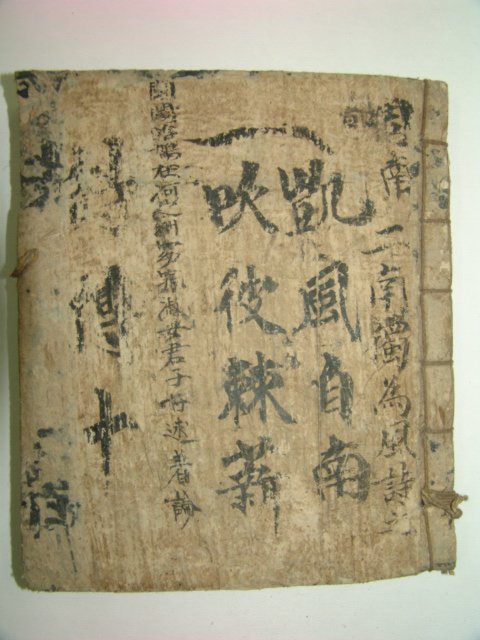 周南 二南獨為風詩之
凱風自南
吹彼棘薪
關關雎鳩在河之洲窈窕淑女君子好逑者論
詩傳十